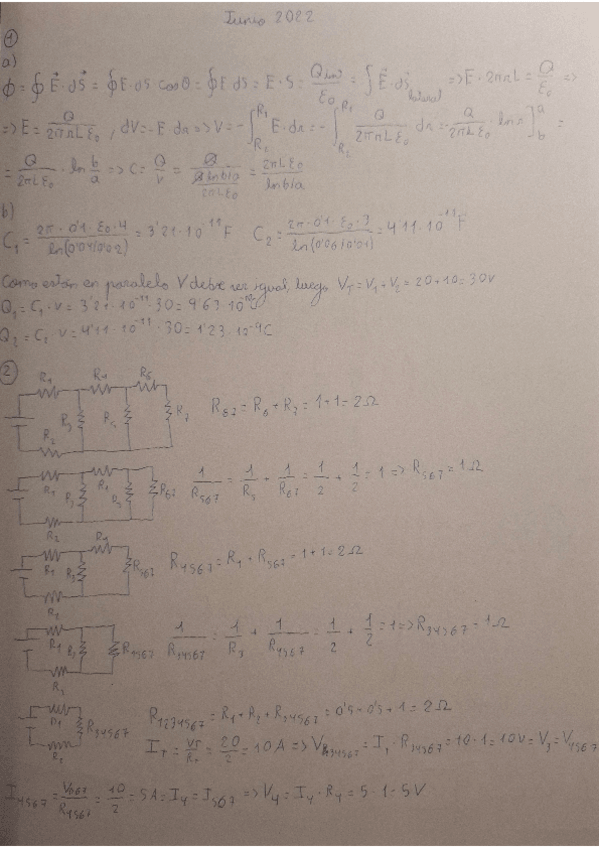 Junio 2022
1
a)
ϕ = ∮ E⃗ · dS⃗ = ∮ E · dS cos θ = ∮ E dS = E · S = Qint/ε₀ = ∫ E⃗ · dS⃗ lateral => E · 2πrL = Q/ε₀ =>
=> E = Q/(2πrLε₀), dV = -E dr => V = -∫ E · dr = -∫ Q/(2πrLε₀) dr = -Q/(2πLε₀) · ln r]ᵃ_b =
= Q/(2πLε₀) · ln b/a => C = Q/V = Q/(Q ln b/a / 2πLε₀) = 2πLε₀/ln b/a
b)
C₁ = 2π · 0'1 · ε₀ · 4/ln(0'04/0'02) = 3'21 · 10⁻¹¹ F C₂ = 2π · 0'1 · ε₀ · 3/ln(0'06/0'04) = 4'11 · 10⁻¹¹ F
Como están en paralelo V debe ser igual, luego V_T = V₁ + V₂ = 20 + 10 = 30V
Q₁ = C₁ · V = 3'21 · 10⁻¹¹ · 30 = 9'63 · 10⁻¹⁰ C
Q₂ = C₂ · V = 4'11 · 10⁻¹¹ · 30 = 1'23 · 10⁻⁹ C
2
R₁ R₄ R₆
R₃ R₅ R₇ R₆₇ = R₆ + R₇ = 1 + 1 = 2Ω
R₂
R₁ R₃ R₄ R₅ R₆₇ 1/R₅₆₇ = 1/R₅ + 1/R₆₇ = 1/2 + 1/2 = 1 => R₅₆₇ = 1Ω
R₂
R₄
R₁ R₃ R₅₆₇ R₄₅₆₇ = R₄ + R₅₆₇ = 1 + 1 = 2Ω
R₂
R₁ R₃ R₄₅₆₇ 1/R₃₄₅₆₇ = 1/R₃ + 1/R₄₅₆₇ = 1/2 + 1/2 = 1 => R₃₄₅₆₇ = 1Ω
R₂
R₁ R₃₄₅₆₇ R₁₂₃₄₅₆₇ = R₁ + R₂ + R₃₄₅₆₇ = 0'5 + 0'5 + 1 = 2Ω
R₂ I_T = V_T/R_T = 20/2 = 10A => V_R₃₄₅₆₇ = I_T · R₃₄₅₆₇ = 10 · 1 = 10V = V₃ = V₄₅₆₇
I₄₅₆₇ = V₄₅₆₇/R₄₅₆₇ = 10/2 = 5A = I₄ = I₅₆₇ => V₄ = I₄ · R₄ = 5 · 1 = 5V